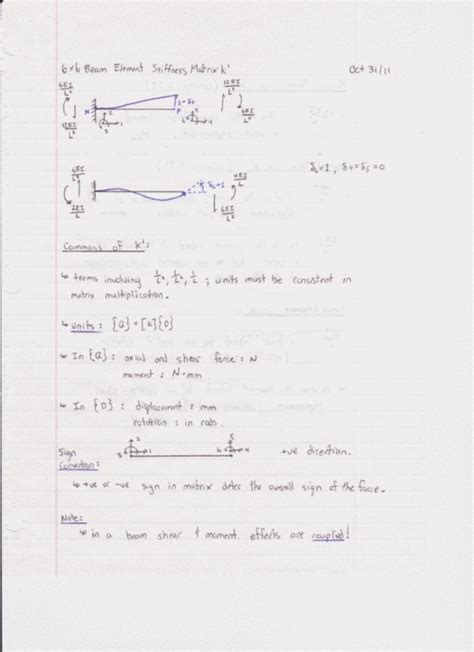 6×6 Beam Element Stiffness Matrix k'
Oct 31/11
6EI/L² 12EI/L³
12EI/L³ 6EI/L²
δ₆=1, δ₄=δ₅=0
4EI/L
2EI/L 6EI/L²
Comments of k':
↳ terms involving 1/L³, 1/L², 1/L ; units must be consistent in
matrix multiplication.
↳ units: {Q}=[K]{D}
↳ In {Q}: axial and shear force = N
moment = N-mm
↳ In {D}: displacement = mm
rotation = in rads.
Sign
Convention:
+ve direction.
↳ +ve or -ve sign in matrix deter the overall sign of the force.
Note:
↳ in a beam shear & moment effects are coupled!